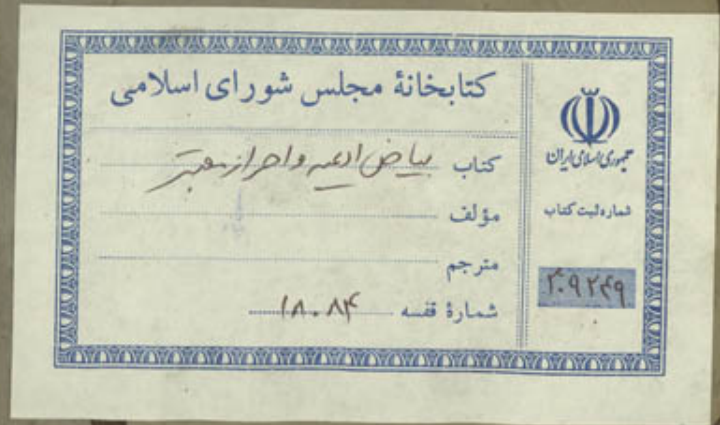 کتابخانهٔ مجلس شورای اسلامی
کتاب بیاض ادعیه و احراز معتبر
مؤلف
مترجم
شمارهٔ قفسه ۱۸۰۸۴
جمهوری اسلامی ایران
شماره ثبت کتاب
۲۰۹۲۴۹